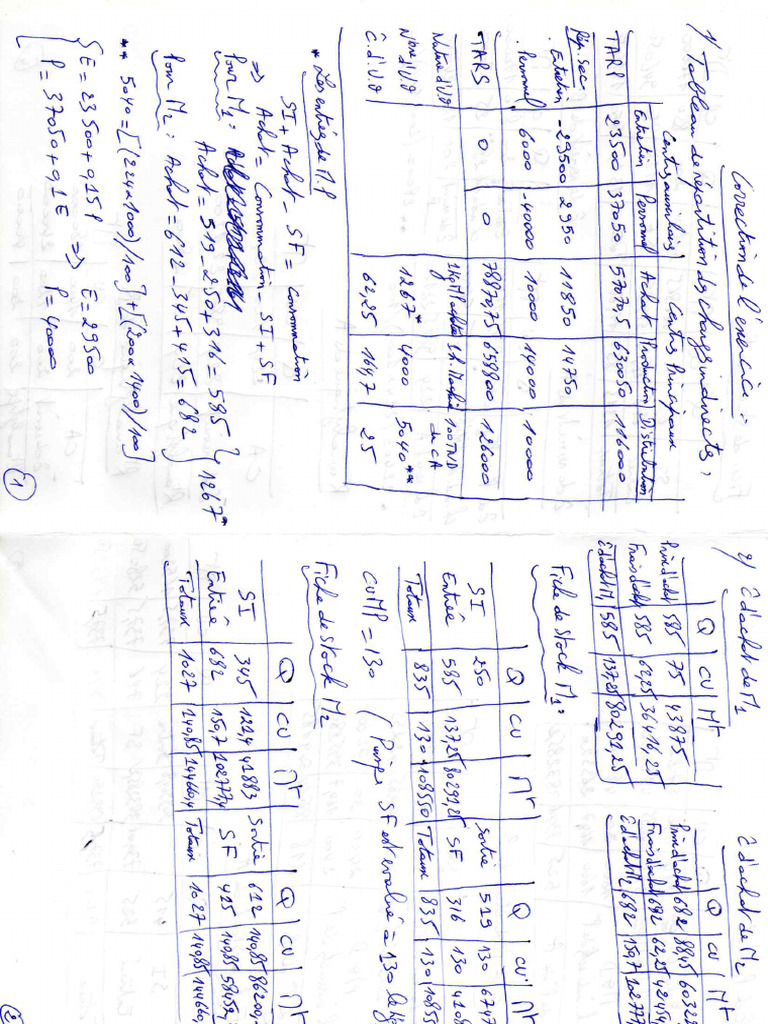 Correction de l'exercice :
1) Tableau de répartition des charges indirectes :
Centres auxiliaires Centres Principaux
Entretien Personnel Achat Production Distribution
TARP 23500 37050 57070,5 630050 116000
Rép. Sec.
. Entretien -29500 2950 11850 14750
. Personnel 6000 -40000 10000 14000 10000
TARS 0 0 78870,75 658800 126000
Nature d'U.O 1 kg MP achetée 1 h. Machine 100 TND de CA
Nbre d'U.O 1267* 4000 5040**
C. d'U.O 62,25 164,7 25
* Les entrées de M.P
SI + Achat - SF = Consommation
=> Achat = Consommation - SI + SF
Pour M1 :
Achat = 519 - 250 + 316 = 585
Pour M2 : Achat = 612 - 345 + 415 = 682
} 1267*
** 5040 = [(224 x 1000)/100] + [(200 x 1400)/100]
{ E = 23500 + 0,15 P => E = 29500
P = 37050 + 0,1 E P = 40000
1
2) C d'achat de M1
Q CU Mt
Prix d'achat 585 75 43875
Frais d'achat 585 62,25 36416,25
C d'achat M1 585 137,25 80291,25
C d'achat de M2
Q CU M
Prix d'achat 682 88,45
Frais d'achat 682 62,25
C d'achat M2 682 150,7
Fiche de Stock M1 :
Q CU Mt Q CU Mt
SI 250 Sortie 519 130
Entrée 585 137,25 80291,25 SF 316 130
Totaux 835 130 108550 Totaux 835 130
CUMP = 130 (Puisque SF est évalué à 130 le kg
Fiche de Stock M2
Q CU Mt Q CU Mt
SI 345 121,4 41883 Sortie 612 140,85
Entrée 682 150,7 102777,4 SF 415 140,85
Totaux 1027 140,85 144660,4 Totaux 1027 140,85
2